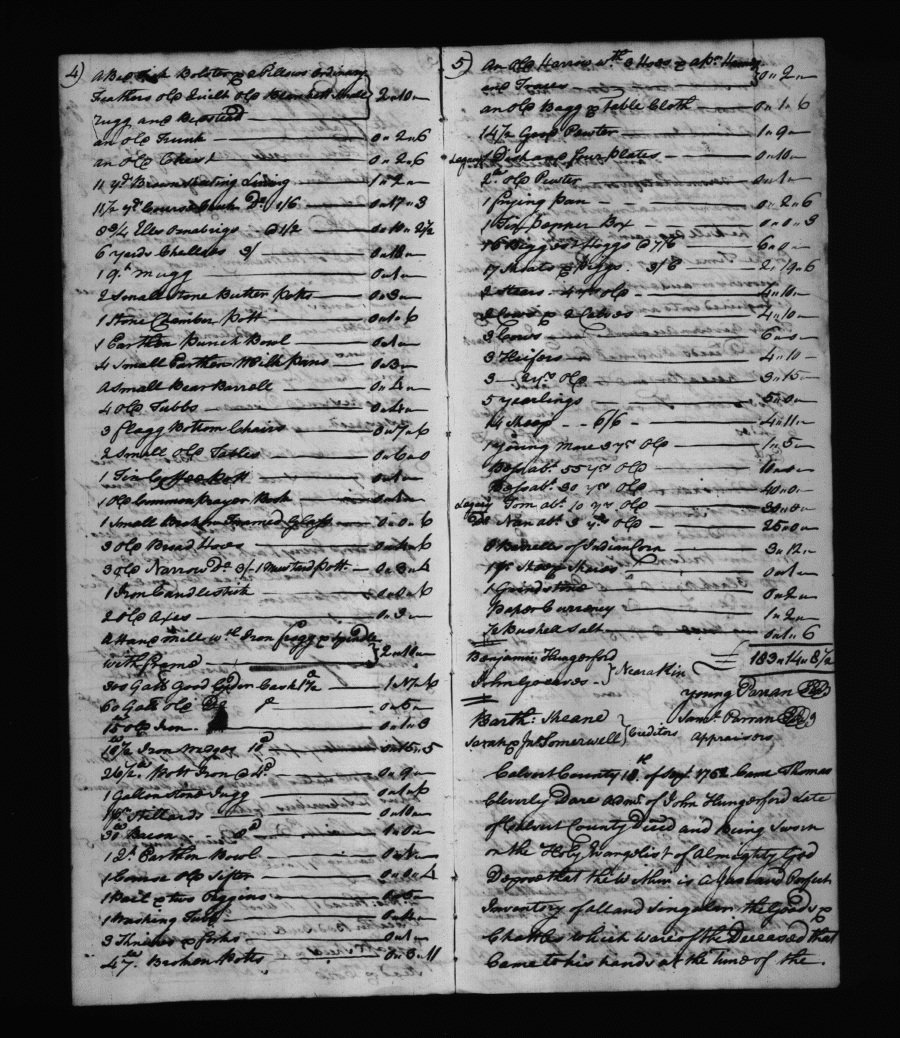 4)
A Bed Tick Bolster & 2 Pillows Ordinary
Feathers Old Quilt Old Blankett Small
rugg and Bedstead 2 „ 10 „ —
an Old Trunk 0 „ 2 „ 6
an Old Chest 0 „ 2 „ 6
11 yds Brown Sheeting Lining 1 „ 2 „ —
11½ yds Course Do 1/6 0 „ 17 „ 3
8 3/4 Ells Oznabrigs @ 1/2 0 „ 10 „ 2½
6 yards Challoes 3/ 0 „ 18 „ —
1 qt mugg 0 „ 1 „ —
2 Small Stone Butter Potts 0 „ 3 „ —
1 Stone Chamber Pott 0 „ 1 „ 6
1 Earthen Punch Bowl 0 „ 1 „ —
4 Small Earthen Milk Pans 0 „ 3 „ —
A Small Bear Barrole 0 „ 4 „ —
4 Old Tubbs 0 „ 4 „ —
3 flagg Bottom Chairs 0 „ 7 „ 6
2 Small Old Tables 0 „ 6 „ 0
1 Tin Coffee Pott 0 „ 1 „ —
1 Old Common prayer Book 0 „ 1 „ —
1 Small Broken framed Glass 0 „ 0 „ 6
3 Old Broad Hoes 0 „ 4 „ 6
3 Old Narrow Do 3/- 1 Mustard pott 0 „ 3 „ 4
1 Iron Candlestick 0 „ 0 „ 6
2 Old Axes 0 „ 3 „ —
A Hand mill wth Iron pegg & Spindle
with frame 2 „ 10 „ —
300 Galls Good Cyder Cask 1¼d 1 „ 17 „ 6
60 Galls Old Do 0 „ 5 „ —
15lb Old Iron 0 „ 1 „ 3
18½ Iron Wedges 10d 0 „ 15 „ 5
26½lb Pott Iron @ 4d 0 „ 9 „ —
1 Gallon Stone Jugg 0 „ 1 „ 6
1 pr Stillards 0 „ 10 „ —
30lb Bacon 8d 1 „ 0 „ —
1 2d Earthen Bowl
1 Course Old Sifter 0 „ 0 „ 4
1 Pail & two Piggins
1 Washing Tubb 0 „ 4 „ —
3 Knives & forks 0 „ 1 „ —
47lb Broken Potts 0 „ 3 „ 11
5)
An Old Harrow wth 2 Hoes & a pr
and Traces 0 „ 2 „ —
an Old Bagg & table Cloth 0 „ 1 „ 6
14½ Good Pewter 1 „ 9 „ —
Legacy 1 Dish and four plates 0 „ 10 „ —
2lb Old Pewter 0 „ 1 „ —
1 frying pan 0 „ 2 „ 6
1 Tin pepper Box 0 „ 0 „ 3
16 Biggest Hoggs @ 7/6 6 „ 0 „ —
17 Shoats & Piggs 3/6 2 „ 19 „ 6
2 Stears 4 yrs Old 4 „ 10 „ —
2 Cows & 2 Calves 4 „ 10 „ —
3 Cows 6 „ 0 „ —
3 Heifers 4 „ 10 „ —
3 2 yrs Old 3 „ 15 „ —
5 yearlings 5 „ 0 „ —
14 Sheep 6/6 4 „ 11 „ —
1 young Mare 3 yrs Old 1 „ 5 „ —
abt 55 yrs Old 10 „ 0 „ —
abt 30 yrs Old 40 „ 0 „ —
Legacy Tom abt 10 yrs Old 30 „ 0 „ —
Do Nan abt 3 yrs Old 25 „ 0 „ —
8 Barrells of Indian Corn 3 „ 12 „ —
1 pr Sheep Shears 0 „ 1 „ —
1 Grindstone 0 „ 2 „ —
Paper Currency 1 „ 2 „ —
½ Bushell Salt 0 „ 1 „ 6
Benjamin Hungerford 183 „ 14 „ 8½
John Greaves } Near a Kin
young Parran
Barth: Sheane Saml Parran
Sarah & Jno Somerwell } Creditors appraisors
Calvert County 18th of Sept 1752 Came Thomas
Cleverly Dare Admr of John Hungerford Late
of Calvert County Deced and being Sworn
on the Holy Evangelist of Almighty God
Depose that the Within is a Just and Perfect
Inventory of all and Singular the Goods &
Chattles which ware of the Deceased that
Came to his hands at the time of the